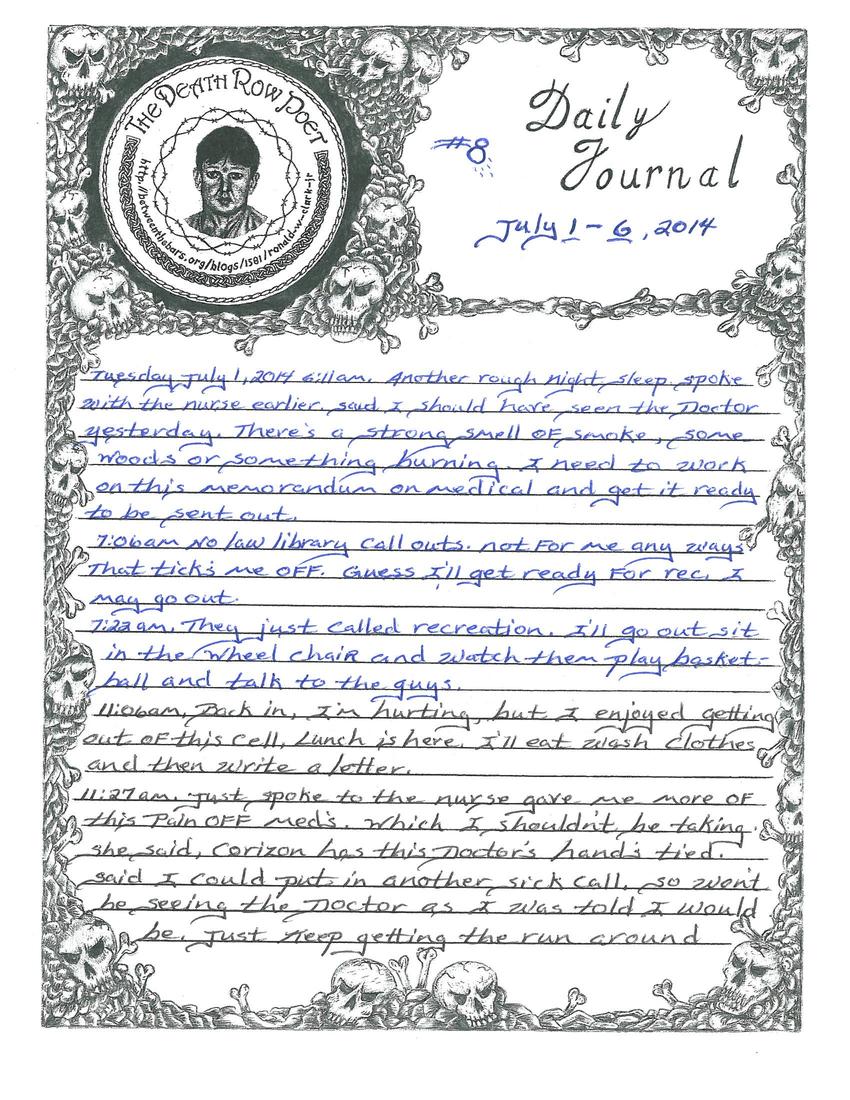 THE DEATH ROW POET
http://betweenthebars.org/blogs/1581/ronald-w-clark-jr
Daily
Journal
#8
July 1 - 6, 2014
Tuesday July 1, 2014 6:11am. Another rough night, sleep. spoke
with the nurse earlier. said I should have seen the Doctor
yesterday. There's a strong smell of smoke, some
woods or something burning. I need to work
on this memorandum on medical and get it ready
to be sent out.
7:06am No law library call outs. not for me any ways
That tick's me off. Guess I'll get ready for rec. I
may go out.
7:23am. They just called recreation. I'll go out sit
in the wheel chair and watch them play basket-
ball and talk to the guys.
11:06am. Back in, I'm hurting, but I enjoyed getting
out of this cell, Lunch is here. I'll eat wash clothes
and then write a letter.
11:27am. Just spoke to the nurse gave me more of
this Pain OFF med's. Which I shouldn't be taking.
she said, Corizon has this Doctor's hand's tied.
said I could put in another sick call. so won't
be seeing the Doctor as I was told I would
be. Just keep getting the run around